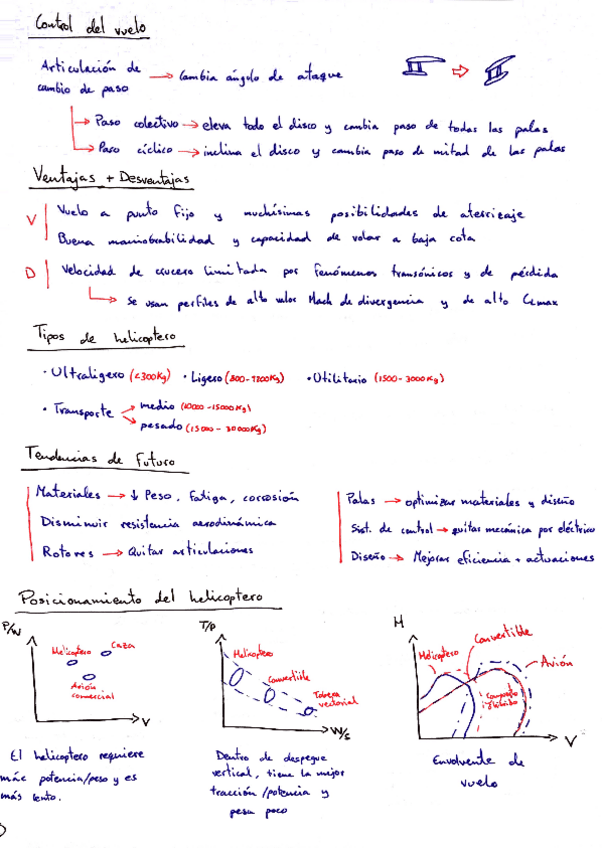 Control del vuelo
Articulación de
cambio de paso → Cambia ángulo de ataque
→ Paso colectivo → eleva todo el disco y cambia paso de todas las palas
→ Paso cíclico → inclina el disco y cambia paso de mitad de las palas
Ventajas + Desventajas
V Vuelo a punto fijo y muchísimas posibilidades de aterrizaje
Buena maniobrabilidad y capacidad de volar a baja cota
D Velocidad de crucero limitada por fenómenos transónicos y de pérdida
→ Se usan perfiles de alto valor Mach de divergencia y de alto CLmax
Tipos de helicoptero
· Ultraligero (<300Kg) · Ligero · Utilitario (1500-3000Kg)
· Transporte → medio (10000-15000Kg)
→ pesado (15000-30000Kg)
Tendencias de futuro
Materiales → ↓ Peso, Fatiga, corrosión
Disminuir resistencia aerodinámica
Rotores → Quitar articulaciones
Palas → optimizar materiales y diseño
Sist. de control → quitar mecánica por eléctrico
Diseño → Mejorar eficiencia + actuaciones
Posicionamiento del helicoptero
P/W
Helicóptero
Caza
Avión
comercial
V
El helicoptero requiere
más potencia/peso y es
más lento.
T/P
Helicóptero
Convertible
Tobera
vectorial
W/S
Dentro de despegue
vertical, tiene la mejor
tracción/potencia y
pesa poco
H
Helicoptero
Convertible
Avión
Compuesto
Híbrido
V
Envolvente de
vuelo